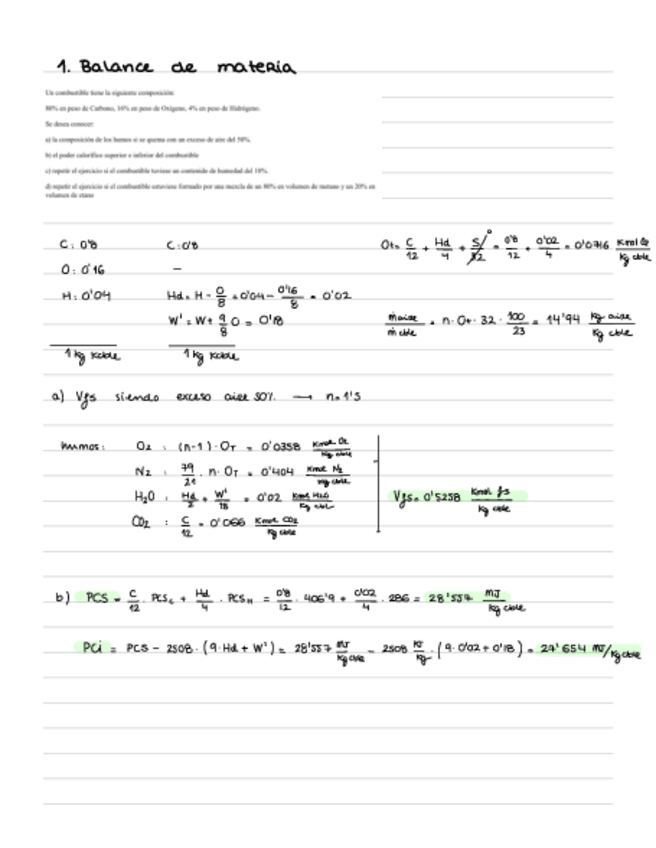 1. Balance de materia
Un combustible tiene la siguiente composición:
80% en peso de Carbono, 16% en peso de Oxígeno, 4% en peso de Hidrógeno.
Se desea conocer:
a) la composición de los humos si se quema con un exceso de aire del 50%
b) el poder calorífico superior e inferior del combustible
c) repetir el ejercicio si el combustible tuviese un contenido de humedad del 10%.
d) repetir el ejercicio si el combustible estuviese formado por una mezcla de un 80% en volumen de metano y un 20% en
volumen de etano
C: 0'8 C: 0'8 Ot= C/12 + Hd/4 + S/32 = 0'8/12 + 0'02/4 = 0'0716 Kmol O2/Kg cble
O: 0'16 —
H: 0'04 Hd = H - O/8 = 0'04 - 0'16/8 = 0'02
W' = W + 9/8 O = 0'18 m aire/m cble = n · Ot · 32 · 100/23 = 14'94 Kg aire/Kg cble
1 kg Kcble 1 kg Kcble
a) Vgs siendo exceso aire 50% → n=1'5
humos: O2 : (n-1) · OT = 0'0358 Kmol O2/Kg cble
N2 : 79/21 · n · OT = 0'404 Kmol N2/Kg cble
H2O : Hd/2 + W'/18 = 0'02 Kmol H2O/Kg cble Vgs = 0'5258 Kmol gs/Kg cble
CO2 : C/12 = 0'066 Kmol CO2/Kg cble
b) PCS = C/12 · PCSc + Hd/4 · PCSH = 0'8/12 · 406'9 + 0'02/4 · 286 = 28'557 MJ/Kg cble
PCi = PCS - 2508 · (9·Hd + W') = 28'557 MJ/Kg cble - 2508 KJ/Kg · (9·0'02 + 0'18) = 27'654 MJ/Kg cble